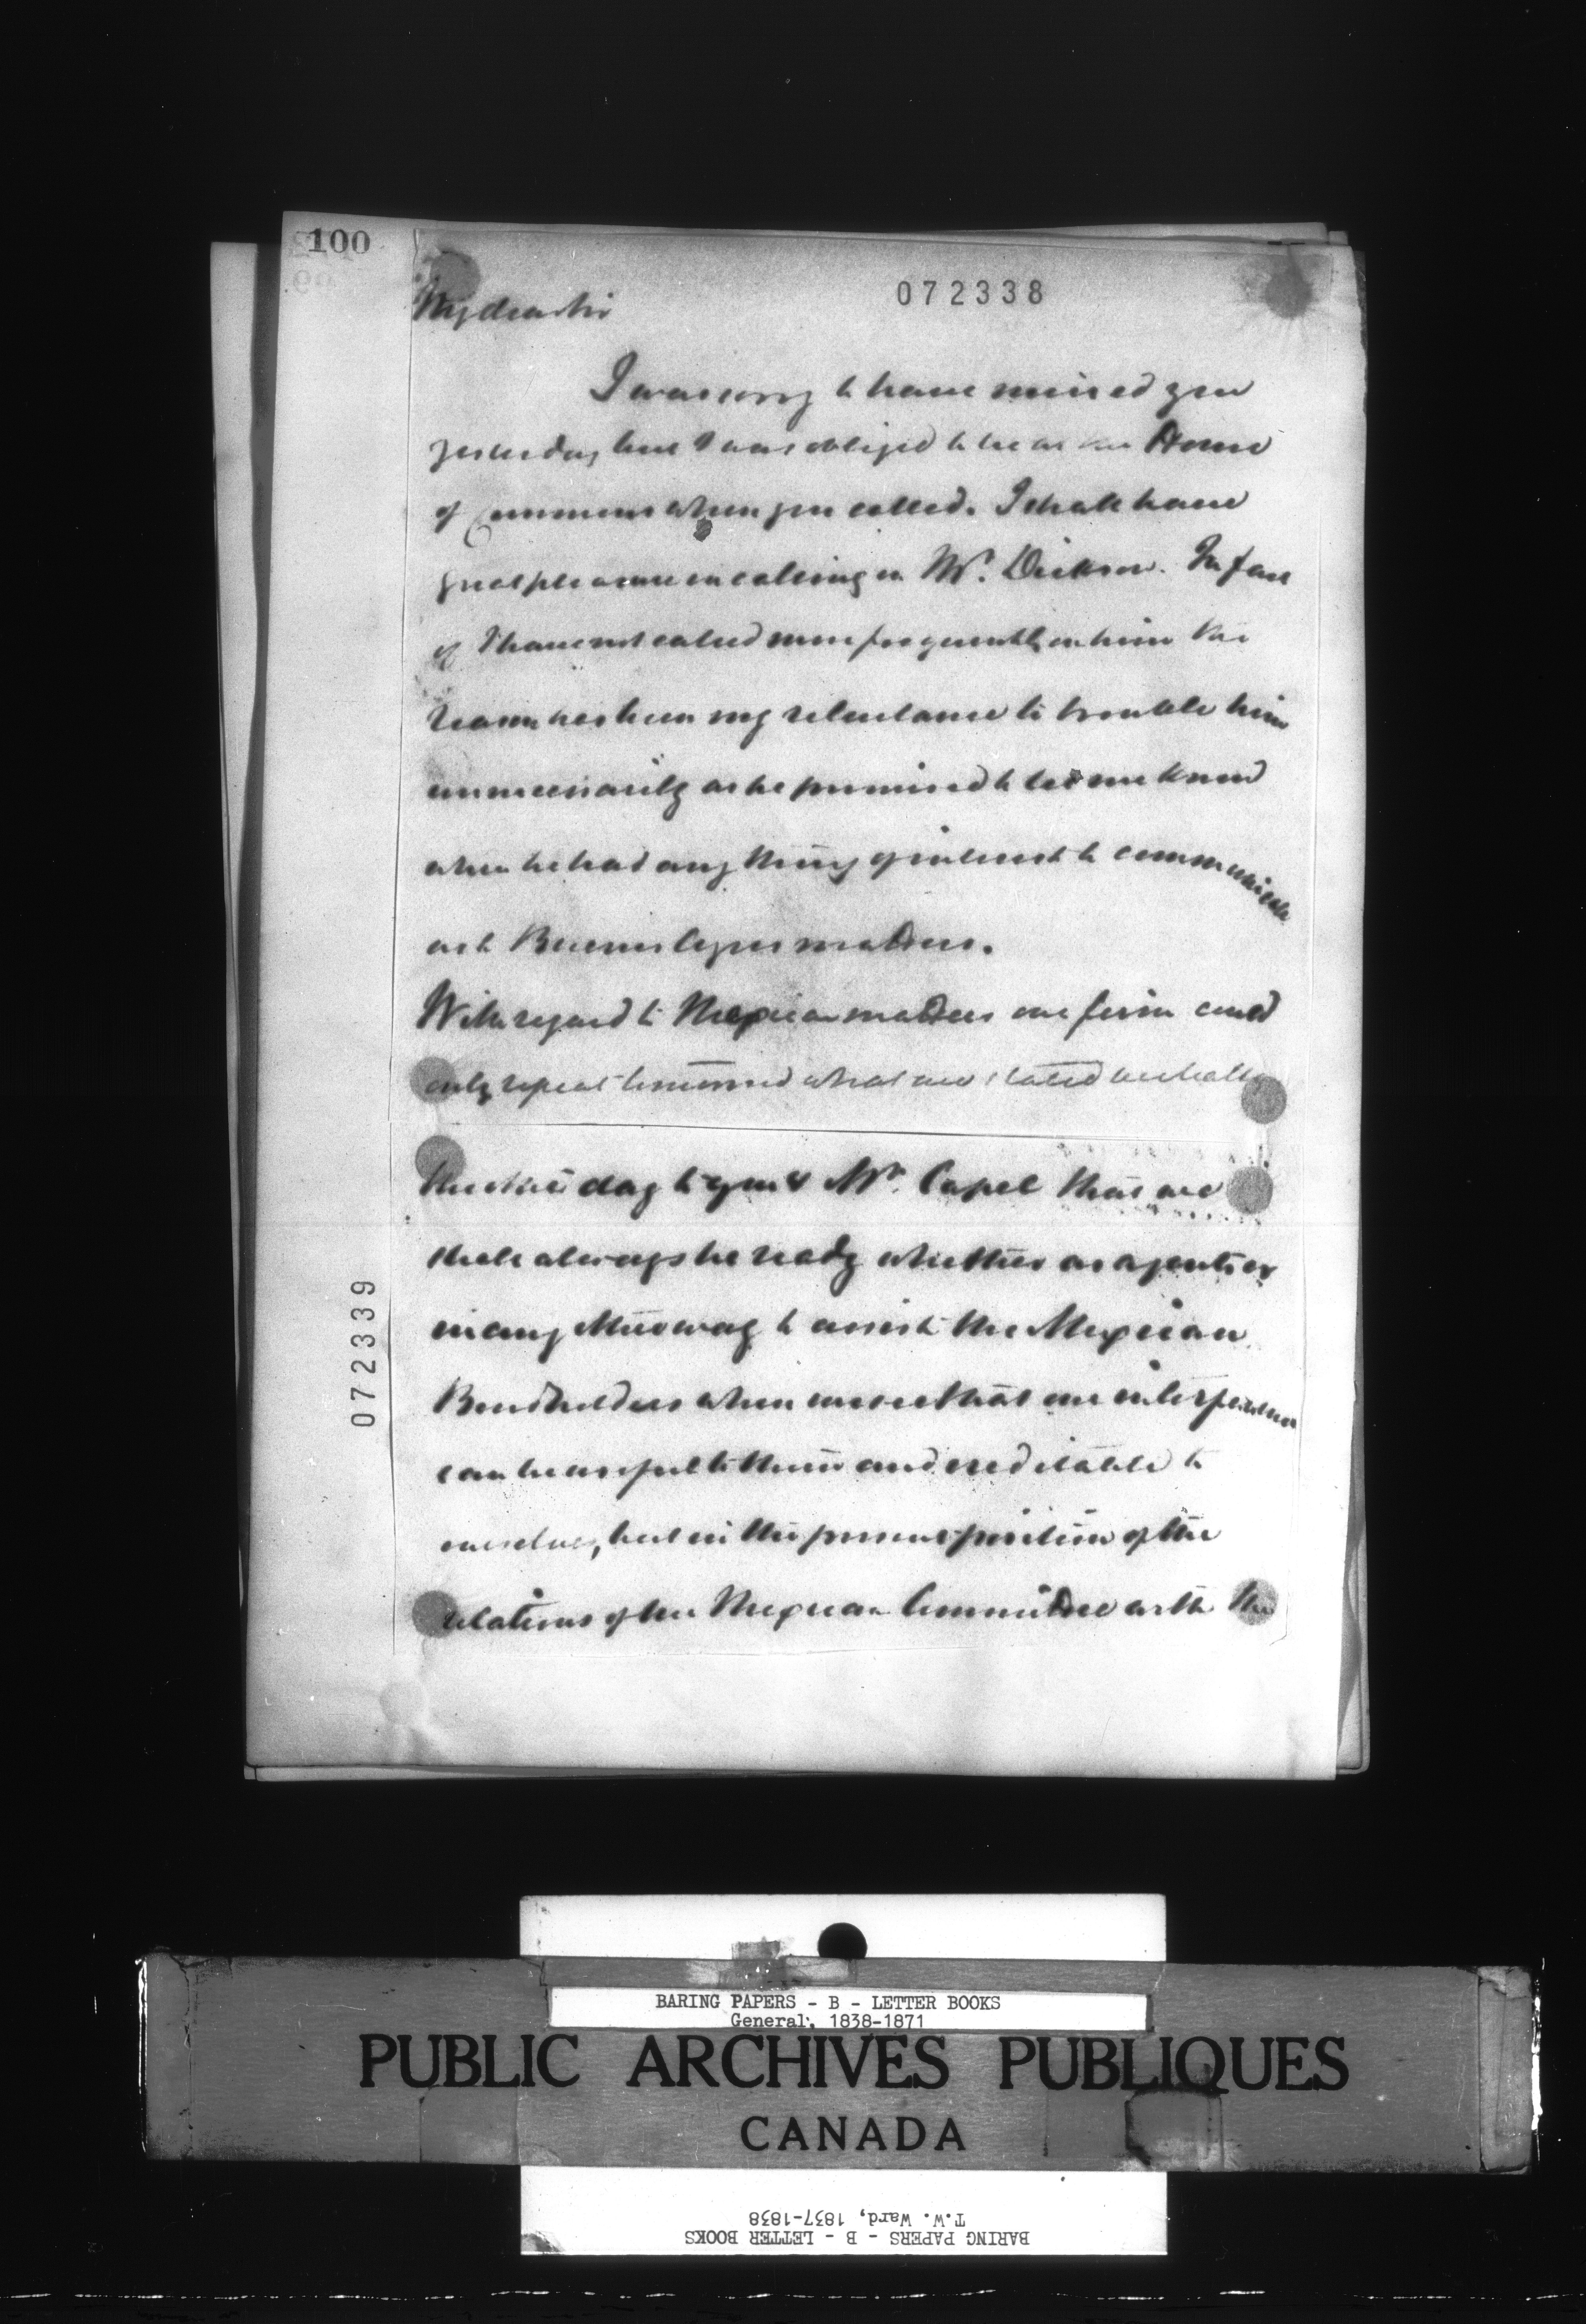 100
072338
My dear Sir
I was sorry to have missed you
yesterday but I was obliged to be at the House
of Commons when you called. I shall have
great pleasure in calling on Mr. Dickson. In fact
if I have not called more frequently on him the
reason has been my reluctance to trouble him
unnecessarily as he promised to let me know
when he had any thing of interest to communicate
as to Buenos Ayres matters.
With regard to Mexican matters our firm could
only repeat to what we stated verbally
the other day to you & Mr. Capel that we
shall always be ready whether as agents or
in any other way to assist the Mexican
Bondholders when we see that our interference
can be useful to them and creditable to
ourselves, but in the present position of the
relations of the Mexican Committee with the
072339
BARING PAPERS - B - LETTER BOOKS
General, 1838-1871
PUBLIC ARCHIVES PUBLIQUES
CANADA
T.W. Ward, 1837-1838
BARING PAPERS - B - LETTER BOOKS